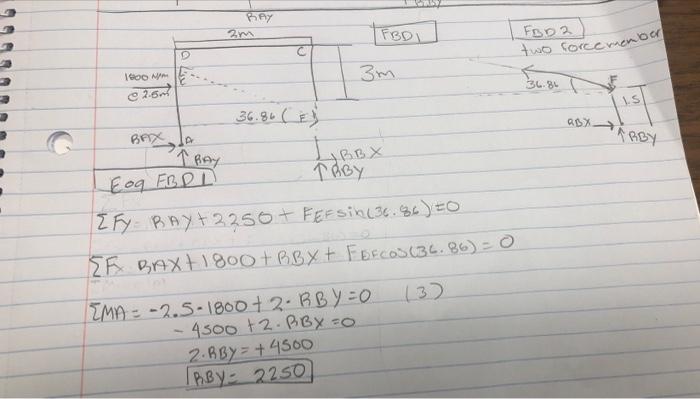 RAY
2m
FBD1
FBD 2
two force member
D
C
1800 N/m
E
@ 2.5m
3m
36.86 (
F
36.86 (
F
1.5
RAX
A
RAY
RBX
RBY
RBX
RBY
Eoq FBD1
ΣFy = RAY + 2250 + FEF sin(36.86) = 0
ΣFx RAX + 1800 + RBX + FEF cos(36.86) = 0
ΣMA = -2.5 · 1800 + 2 · RBY = 0 (3)
- 4500 + 2 · RBY = 0
2 · RBY = + 4500
RBY = 2250